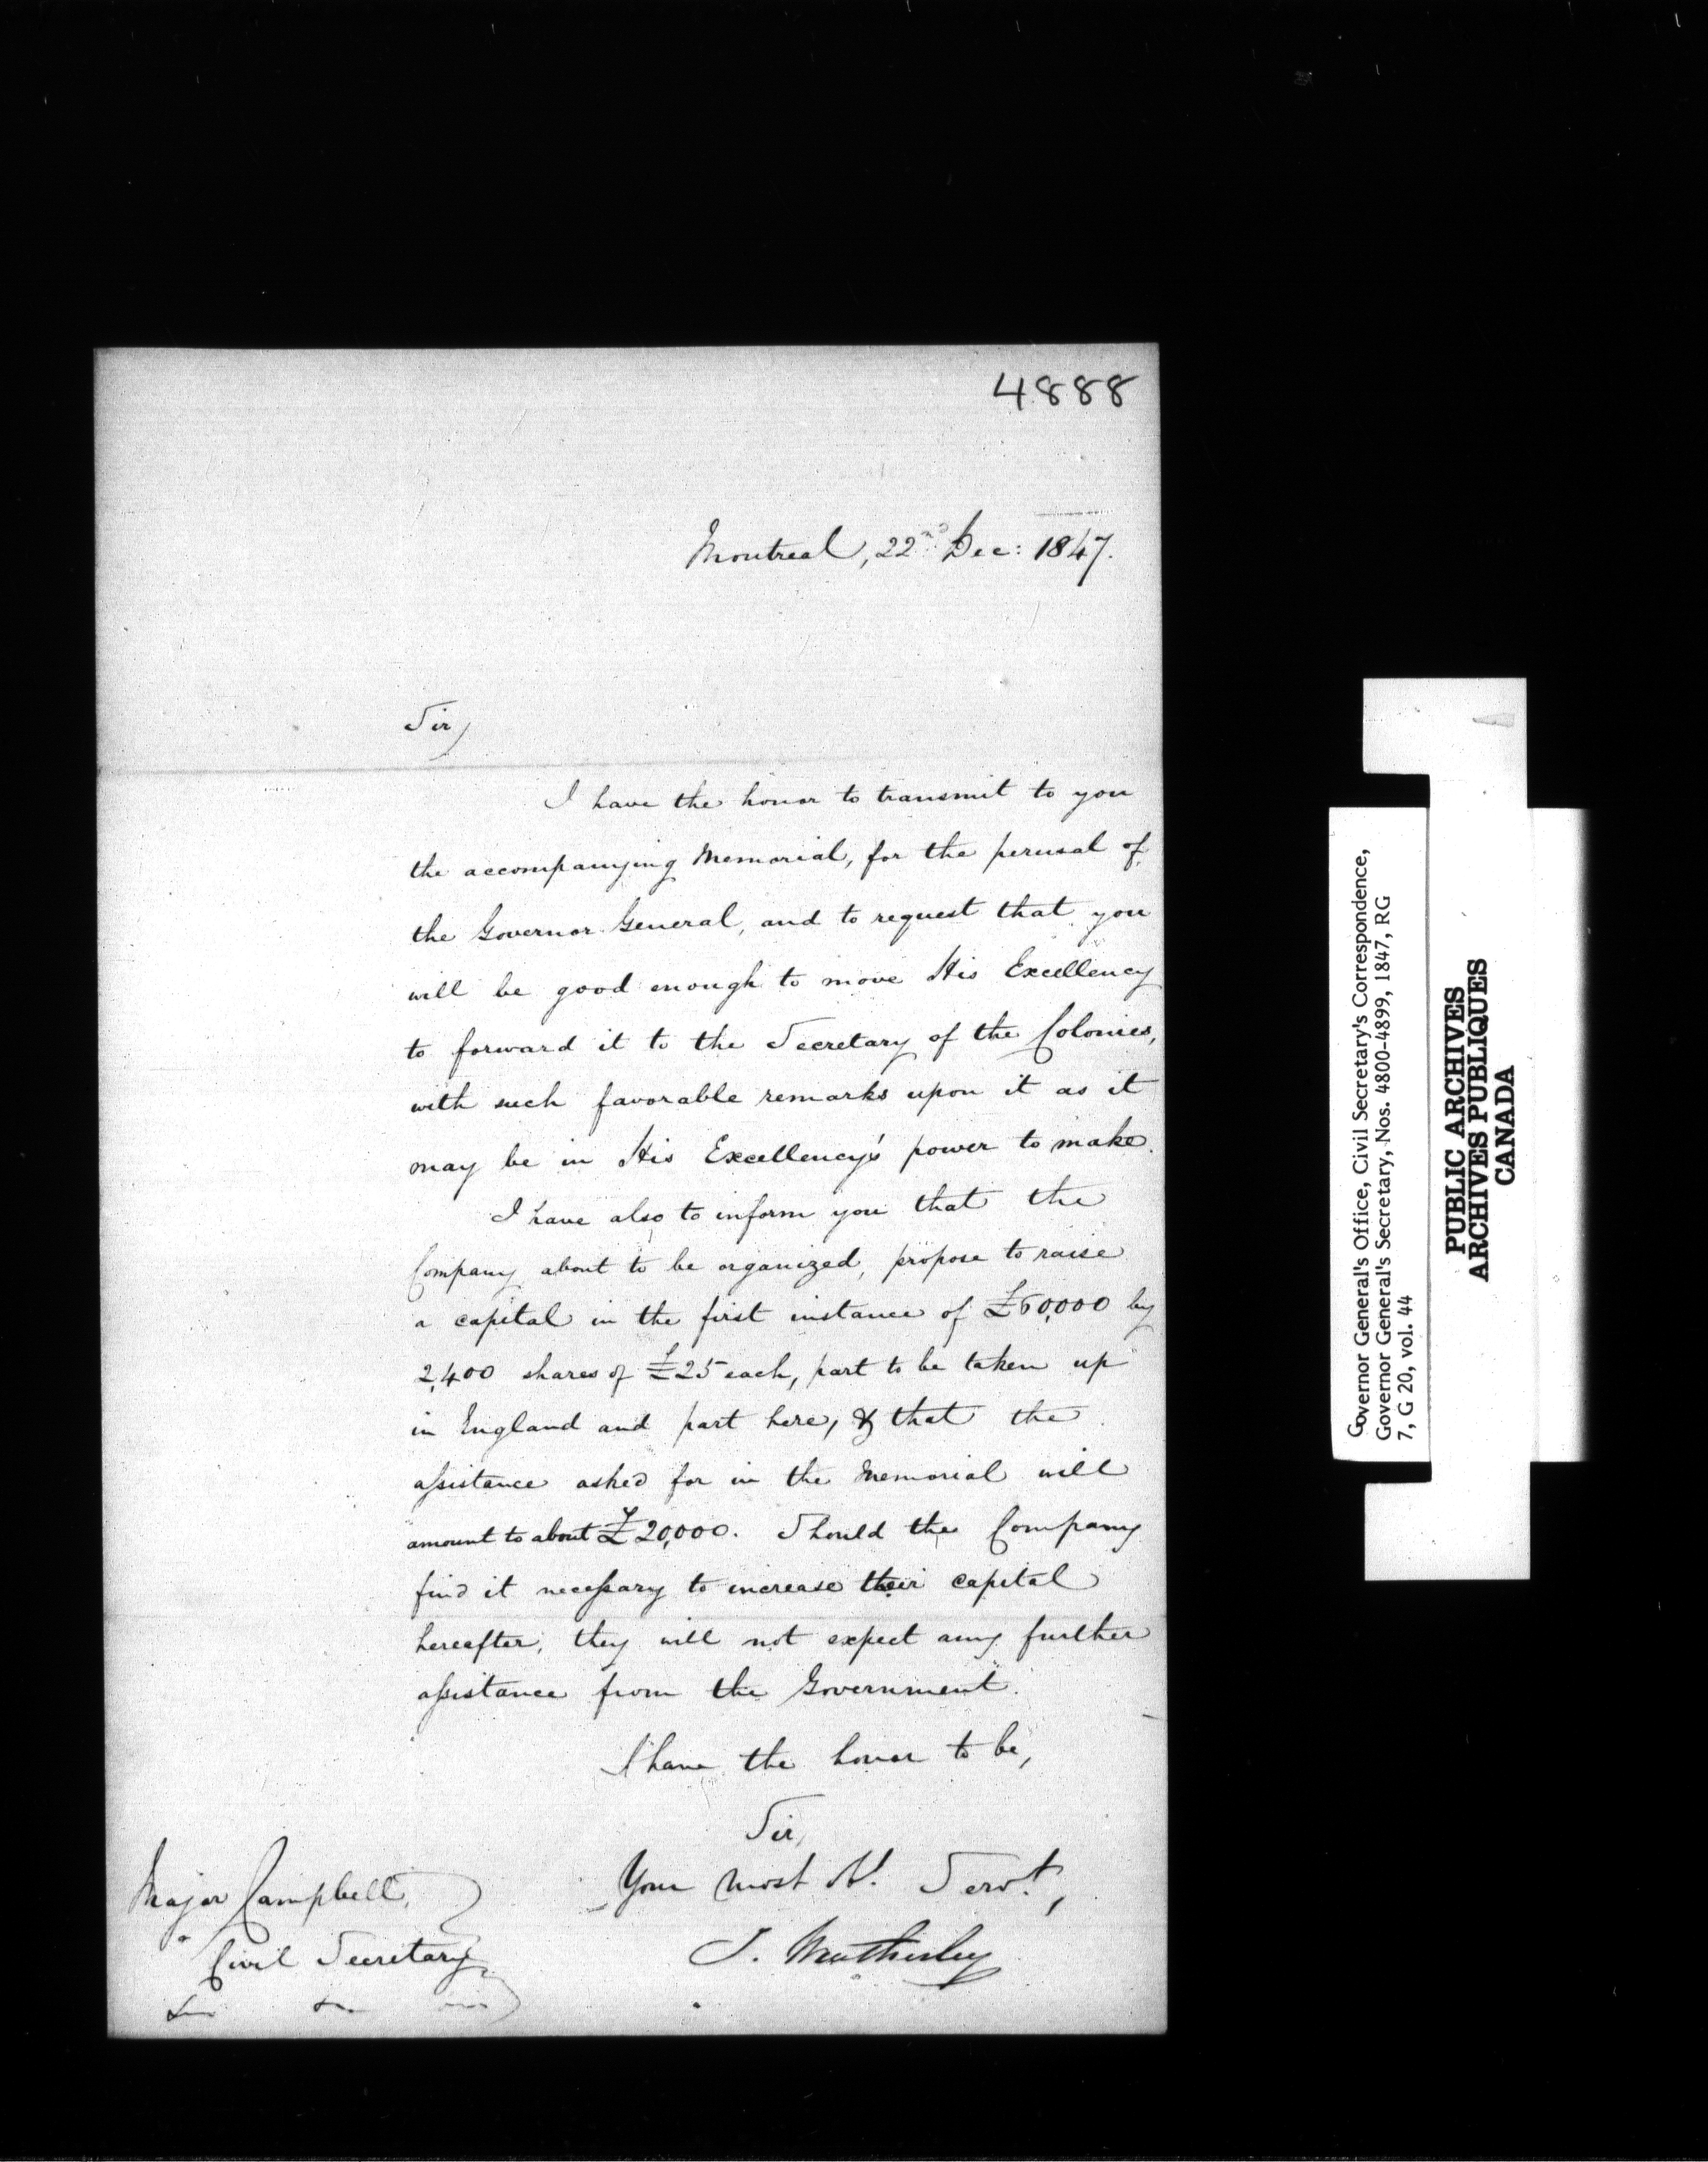 4888
Montreal, 22nd Dec: 1847.
Sir,
I have the honor to transmit to you
the accompanying Memorial, for the perusal of
the Governor General, and to request that you
will be good enough to move His Excellency
to forward it to the Secretary of the Colonies,
with such favorable remarks upon it as it
may be in His Excellency's power to make.
I have also to inform you that the
Company about to be organized, propose to raise
a capital in the first instance of £60,000 by
2,400 shares of £25 each, part to be taken up
in England and part here, & that the
assistance asked for in the Memorial will
amount to about £20,000. Should the Company
find it necessary to increase their capital
hereafter, they will not expect any further
assistance from the Government.
I have the honor to be,
Sir,
Your most Ob. Servt,
J.
Major Campbell,
Civil Secretary
&c &c
Governor General's Office, Civil Secretary's Correspondence,
Governor General's Secretary, Nos. 4800-4899, 1847, RG
7, G 20, vol. 44
PUBLIC ARCHIVES
ARCHIVES PUBLIQUES
CANADA